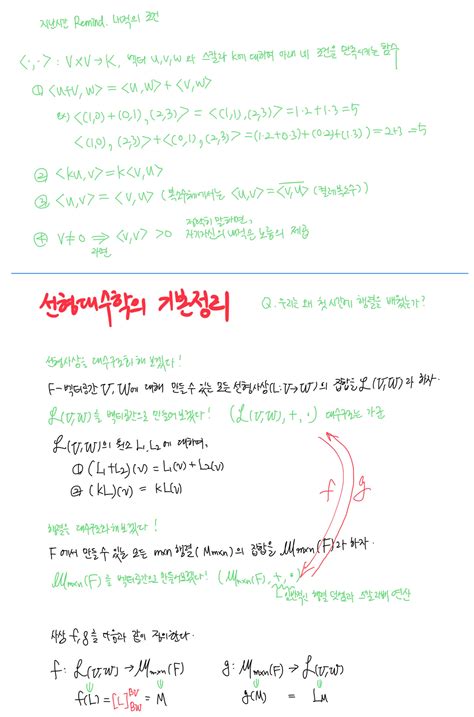 지난시간 Remind. 내적의 조건
<·,·> : V×V→K, 벡터 u,v,w 와 스칼라 k에 대하여 아래 네 조건을 만족시키는 함수
① <u+v,w> = <u,w> + <v,w>
ex) <(1,0)+(0,1),(2,3)> = <(1,1),(2,3)> = 1·2+1·3=5
<(1,0),(2,3)>+<(0,1),(2,3)> = (1·2+0·3)+(0·2+1·3) = 2+3 = 5
② <ku,v> = k<v,u>
③ <u,v> = <v,u> (복소수체에서는 <u,v> = \overline{<v,u>} (켤레복소수))
④ v≠0 ⇒ <v,v> >0
이면
정확히 말하면,
자기자신의 내적은 노름의 제곱
선형대수학의 기본정리
Q. 우리는 왜 첫시간에 행렬을 배웠는가?
선형사상을 대수구조화 해보겠다!
F-벡터공간 V, W에 대해 만들 수 있는 모든 선형사상(L:V→W)의 집합을 ℒ(V,W)라 하자.
ℒ(V,W)를 벡터공간으로 만들어보겠다! (ℒ(V,W),+,·) 대수구조는 가군
ℒ(V,W)의 원소 L₁,L₂에 대하여,
① (L₁+L₂)(v) = L₁(v)+L₂(v)
② (kL)(v) = kL(v)
f g
행렬을 대수구조화해보겠다!
F에서 만들 수 있는 모든 m×n 행렬(Mm×n)의 집합을 ℳm×n(F)라 하자.
ℳm×n(F)를 벡터공간으로 만들어보겠다! (ℳm×n(F),+,·)
일반적인 행렬 덧셈과 스칼라배 연산
사상 f,g를 다음과 같이 정의한다.
f: ℒ(V,W) → ℳm×n(F) g: ℳm×n(F) → ℒ(V,W)
f(L) = [L]^{BV}_{BW} = M g(M) = L_M